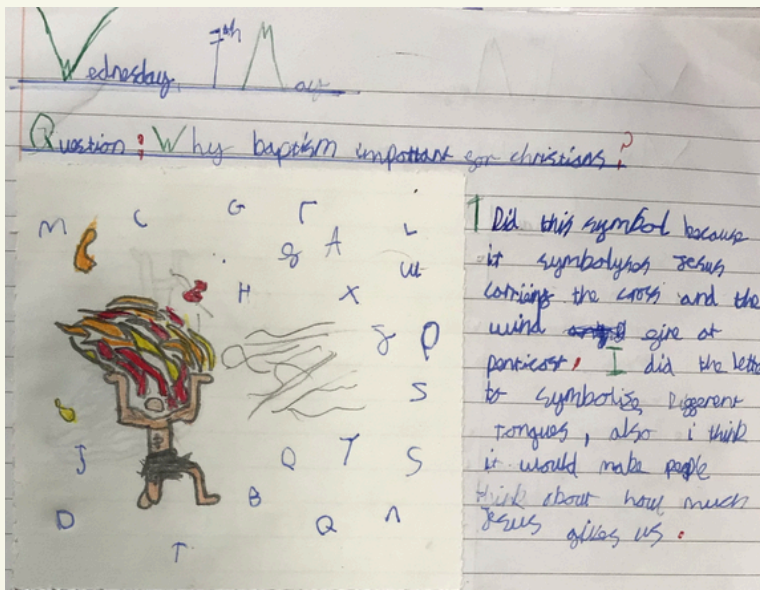 Wednesday 7th May
Question: Why baptism important for christians?
M C G Γ L
g A w
H X
J P
S
J Q T S
B
D Q Λ
T
I Did this symbol because
it symbolyses Jesus
carriing the cross and the
wind fire at
penticost. I did the lette
to symbolise Different
Tongues, also i think
it would make people
think about how much
Jesus gives us.